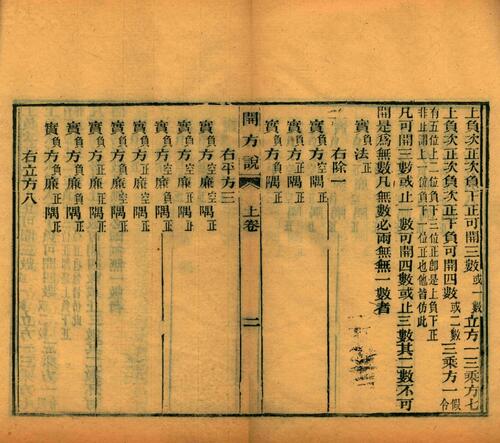 上負次正次負下正可開三數或一數立方一三乘方七
上負次正次負次正下負可開四數或二數三乘方一令假
有五位上二位負下三位正卽是上負下正
非止謂上一位負下一位正也他皆仿此
凡可開三數或止一數可開四數或止二數其二數不可
開是為無數凡無數必兩無無一數者
實負法正
右除一
實負方空隅正
實負方正隅正
實負方負隅正
開方說 上卷 二
右平方三
實負方空廉空隅正
實負方正廉空隅正
實負方負廉空隅正
實負方空廉正隅正
實負方正廉正隅正
實負方負廉正隅正
實負方負廉負隅正
右立方八